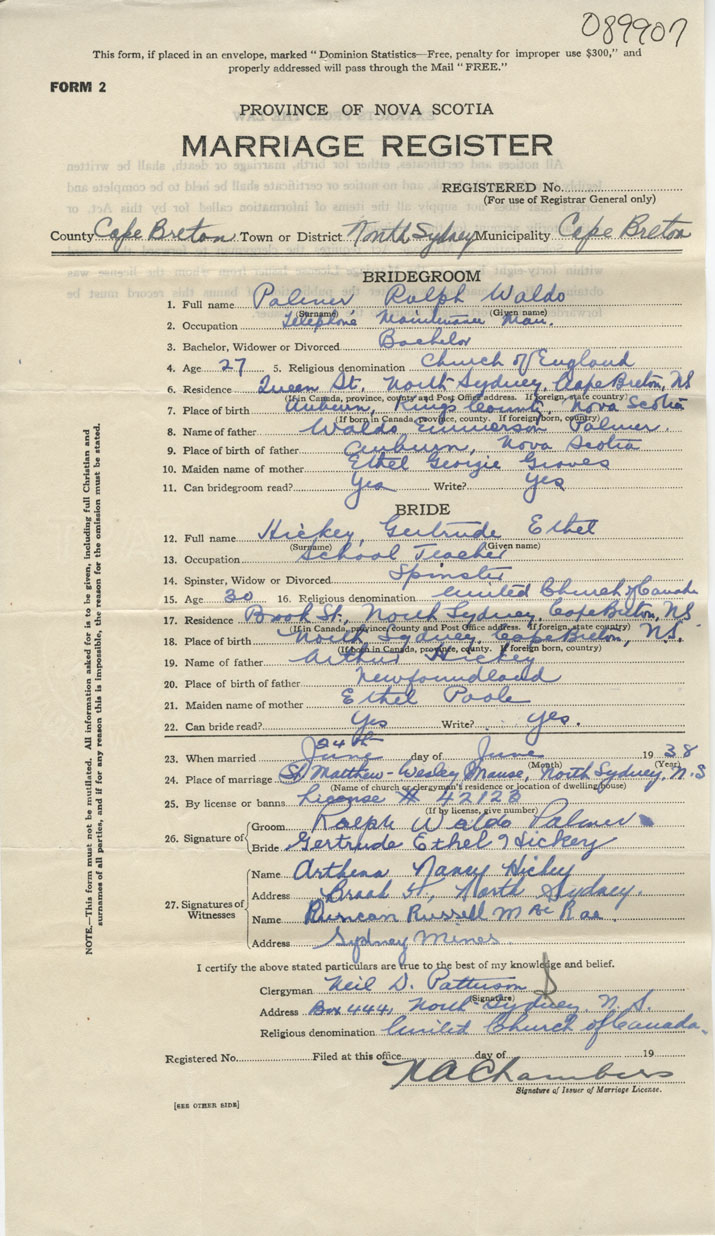 089907
This form, if placed in an envelope, marked "Dominion Statistics—Free, penalty for improper use $300," and
properly addressed will pass through the Mail "FREE."
FORM 2
PROVINCE OF NOVA SCOTIA
MARRIAGE REGISTER
REGISTERED No.
(For use of Registrar General only)
County Cape Breton Town or District North Sydney Municipality Cape Breton
BRIDEGROOM
1. Full name Palmer Ralph Waldo
(Surname) (Given name)
2. Occupation Telephone Maintenance Man.
3. Bachelor, Widower or Divorced Bachelor
4. Age 27 5. Religious denomination Church of England
6. Residence Queen St. North Sydney, Cape Breton, NS
(If in Canada, province, county and Post Office address. If foreign, state country)
7. Place of birth Auburn, Kings County, Nova Scotia
(If born in Canada, province, county. If foreign born, country)
8. Name of father Waldo Emmerson Palmer.
9. Place of birth of father Auburn, Nova Scotia
10. Maiden name of mother Ethel Georgie Groves
11. Can bridegroom read? Yes Write? Yes
BRIDE
12. Full name Hickey, Gertrude Ethel
(Surname) (Given name)
13. Occupation School Teacher
14. Spinster, Widow or Divorced Spinster
15. Age 30 16. Religious denomination United Church of Canada
17. Residence Brook St., North Sydney, Cape Breton, NS
(If in Canada, province, county and Post Office address. If foreign, state country)
18. Place of birth North Sydney, Cape Breton, N.S.
(If born in Canada, province, county. If foreign born, country)
19. Name of father Arthur Hickey
20. Place of birth of father Newfoundland
21. Maiden name of mother Ethel Poole
22. Can bride read? Yes Write? Yes.
23. When married June 24th day of June 1938
(Month) (Year)
24. Place of marriage St Matthew-Wesley Manse, North Sydney, N.S
(Name of church or clergyman's residence or location of dwelling house)
25. By license or banns License # 42123
(If by license, give number)
26. Signature of Groom Ralph Waldo Palmer
Bride Gertrude Ethel Hickey
27. Signatures of Witnesses Name Arthena Nancy Hickey
Address Brook St, North Sydney.
Name Duncan Russell MacRae
Address Sydney Mines
I certify the above stated particulars are true to the best of my knowledge and belief.
Clergyman Neil D. Patterson
(Signature)
Address Box 444, North Sydney, N.S.
Religious denomination United Church of Canada.
Registered No. Filed at this office day of 19
N A Chambers
Signature of Issuer of Marriage License.
[SEE OTHER SIDE]
NOTE.—This form must not be mutilated. All information asked for is to be given, including full Christian and
surnames of all parties, and if for any reason this is impossible, the reason for the omission must be stated.